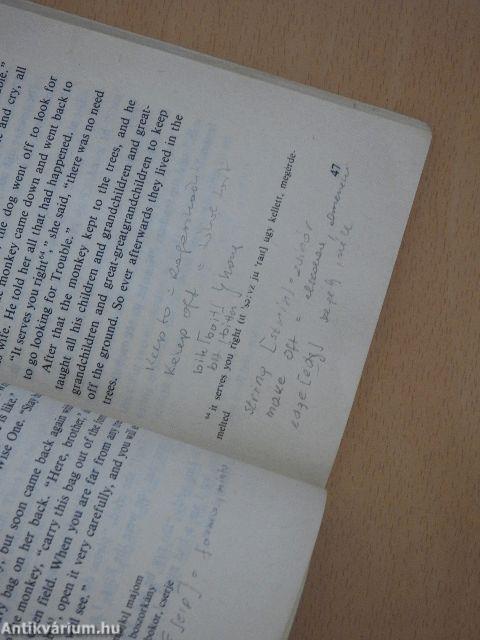 able."
e and cry, all
the dog went off to look for
monkey came down and went back to
s wife. He told her all that had happened.
"It serves you right⁶⁴," she said, "there was no need
to go looking for Trouble."
After that the monkey kept to the trees, and he
taught all his children and grandchildren and great-
grandchildren and great-greatgrandchildren to keep
off the ground. So ever afterwards they lived in the
trees.
Keep to =
Keep off =
bite [bait]
bit bitten
⁶⁴ it serves you right (it 'sə:vz ju 'rait) úgy kellett, megérde-
melted
string [striŋ] = zsinór
make off =
edge [edʒ] szegély
47
is like.'
Wise One. "Stay
y, but soon came back again
ry bag on her back. "Here, brother,"
the monkey, "carry this bag out of the
en field. When you are far from any
open it very carefully, and you will
ll see."
majom
boszorkány
bokor, cserje
Antikvárium.hu